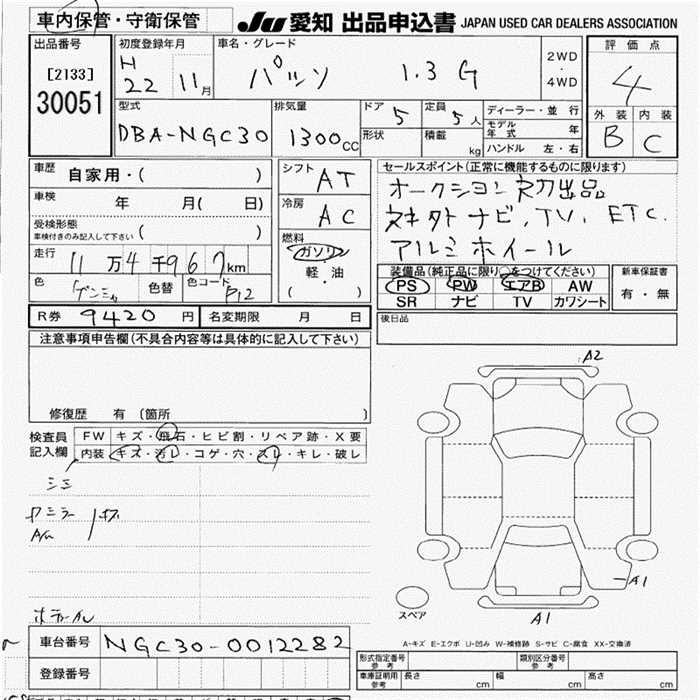 車内保管・守衛保管
JU 愛知 出品申込書 JAPAN USED CAR DEALERS ASSOCIATION
出品番号
[2133]
30051
初度登録年月
H
22 11月
車名・グレード
パッソ 1.3 G
2WD
・
4WD
評価点
4
外装 内装
B C
型式
DBA-NGC30
排気量
1300cc
ドア 5
形状
定員 5人
積載 kg
ディーラー・並行
モデル年式 年
ハンドル 左・右
車歴 自家用・( )
車検 年 月( 日)
受検形態
車検付きのみ記入して下さい ( )
走行 11万4千967km
色 色替 色コード P12
シフト AT
冷房 AC
燃料
ガソリン
・
軽・油
( )
セールスポイント(正常に機能するものに限ります)
オークション初出品
ナビ、TV、ETC.
アルミホイール
装備品(純正品に限り○をつけてください)
PS PW エアB AW
SR ナビ TV カワシート
新車保証書
有・無
後日品
R券 9420円 名変期限 月 日
注意事項申告欄(不具合内容等は具体的に記入して下さい)
修復歴 有 (箇所 )
検査員
記入欄
FW キズ・飛石・ヒビ割・リペア跡・X要
内装 キズ・汚レ・コゲ・穴・スレ・キレ・破レ
A2
A1
A1
スペア
A-キズ E-エクボ U-凹み W-補修跡 S-サビ C-腐食 XX-交換済
車台番号 NGC30-0012282
登録番号
形式指定番号
参考
類別区分番号
参考
車庫証明用
参考
長さ cm 幅 cm 高さ cm